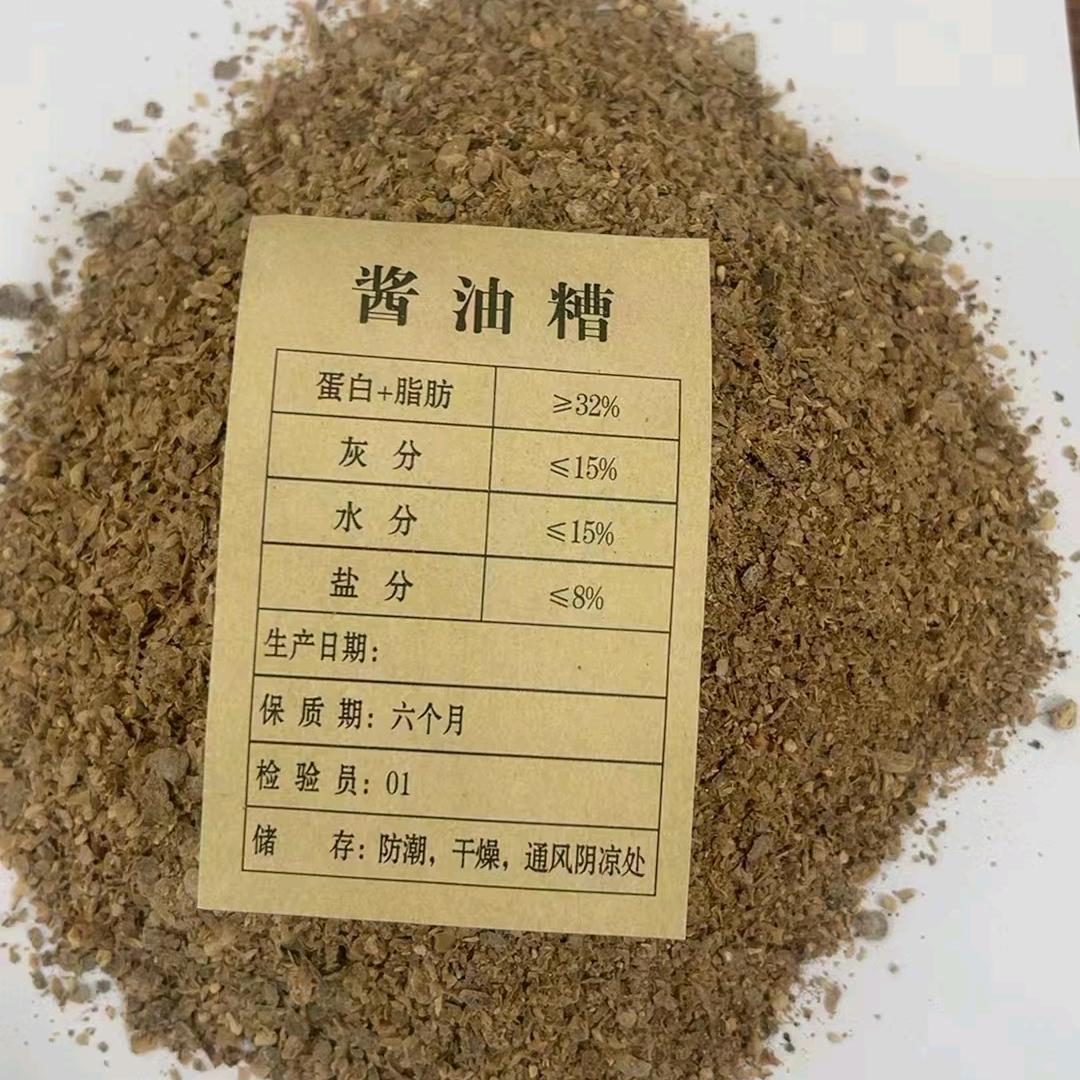 酱油糟
蛋白+脂肪 ≥32%
灰分 ≤15%
水分 ≤15%
盐分 ≤8%
生产日期:
保质期: 六个月
检验员: 01
储存: 防潮, 干燥, 通风阴凉处